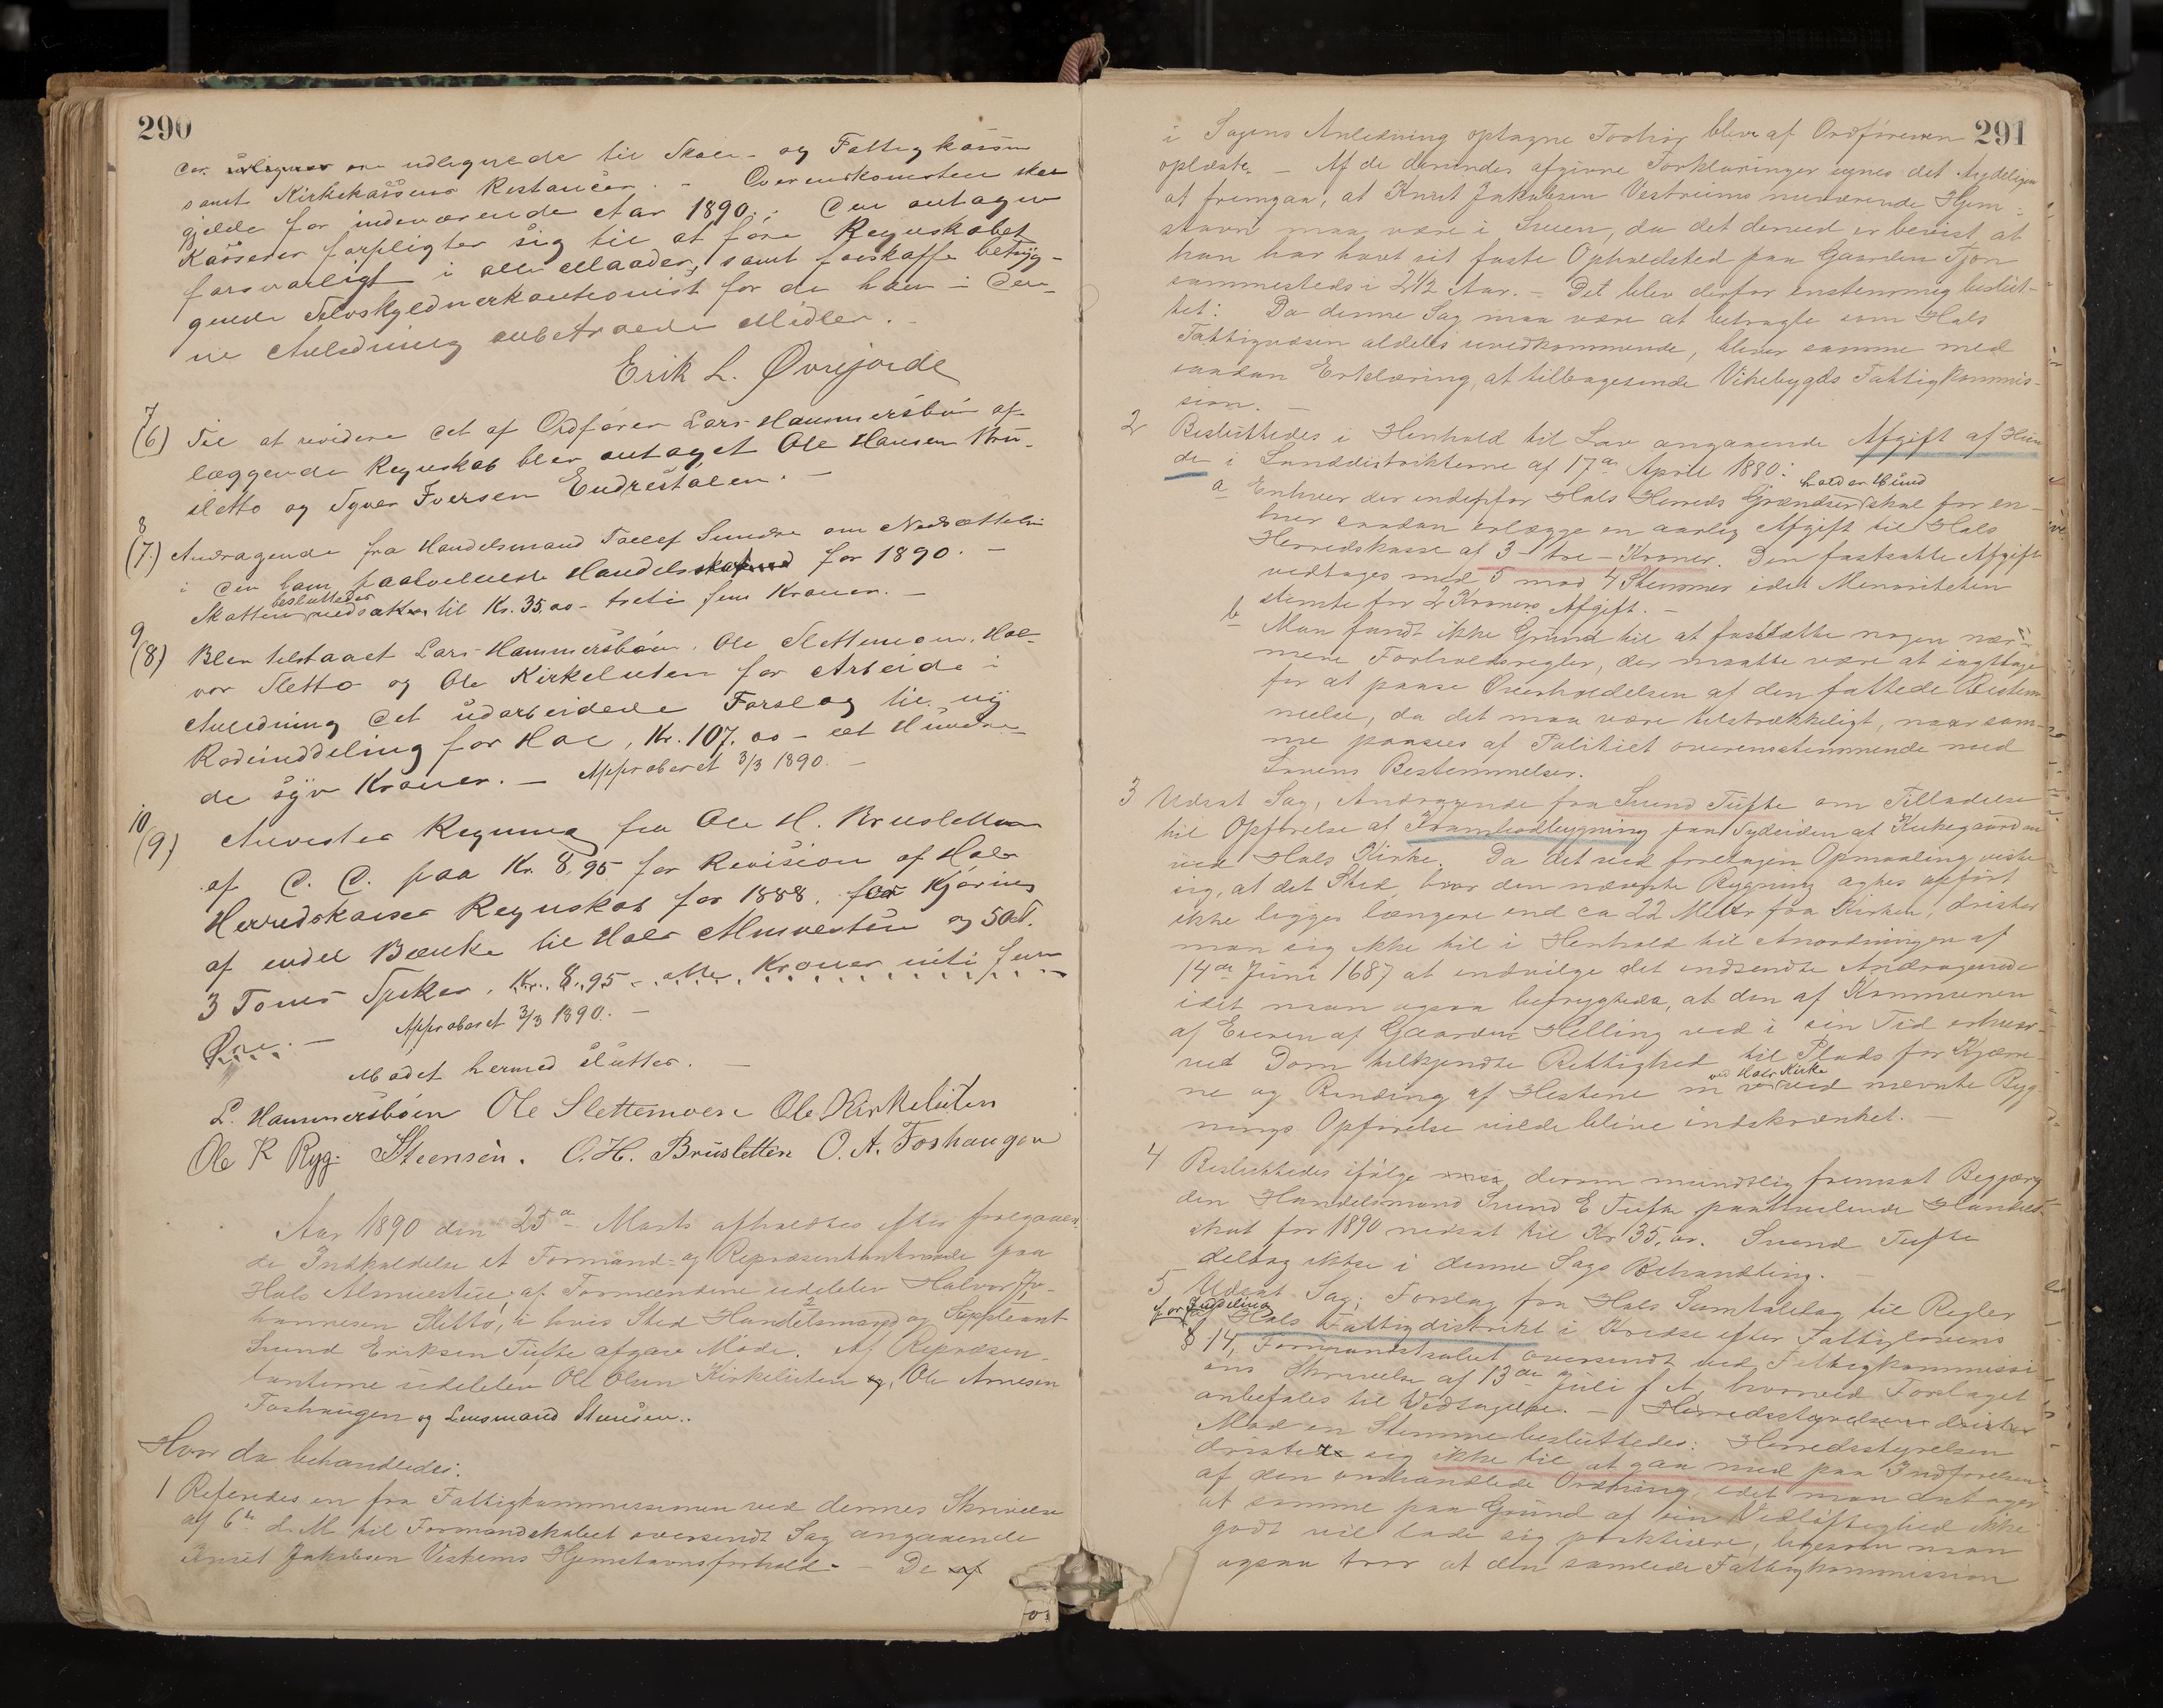 290
der udlignede til Skole- og Fattigkassen
samt Kirkekassens Restancer. - Overenskomsten skal
gjelde for indeværende Aar 1890. - Den antagne
Kasserer forpligter sig til at føre Regnskabet
forsvarligt i alle Maader, samt forskaffe betryg-
gende Selvskyldnerkautionist for de ham i den-
ne Anledning anbetroede Midler. -
Erik L. Øvrejorde
7
(6) Til at revidere det af Ordfører Lars Hammersbøen af-
læggende Regnskab blev antaget Ole Hansen Bru-
sletto og Iver Iversen Endrestølen. -
8
(7.) Andragende fra Handelsmand Tollef Sundre om Nedsættelse
i den ham paahvilende Handelsskat for 1890. -
besluttedes
Skatten nedsat til Kr. 35.00 - treti fem Kroner. -
9
(8) Blev tilstaaet Lars Hammersbøen, Ole Slettemoen, Hal-
vor Sletto og Ole Kirkeluten for Arbeide i
Anledning det udarbeidede Forslag til ny
Rodeinddeling for Hol, Kr. 107.00 - et Hundre-
de syv Kroner. - Approberet 3/3 1890. -
10
(9) Anvistes Regning fra Ole H. Brusletten
af C. C. paa Kr. 8.95 for Revision af Hols
Herredskasses Regnskab for 1888, for Kjøring
af endel Bænke til Hols Almuestue og 50 st.
3 Toms Spiker, Kr. 8.95 - otte Kroner niti fem
Øre. - Approberet 3/3 1890. -
Mødet hermed slutter. -
L. Hammersbøen Ole Slettemoen Ole Kirkeluten
Ole K Ryg. Steensen. O. H. Brusletten O. A. Foshaugen
Aar 1890 den 25de Marts afholdtes efter foregaaen-
de Indkaldelse et Formands- og Repræsentantmøde paa
Hols Almuestue; af Formændene udeblev Halvor Jo-
hannesen Sletto, i hvis Sted Handelsmand og 2 Suppleant
Svend Eriksen Tufte afgav Møde. Af Repræsen-
tanterne udeblev Ole Olsen Kirkeluten, Ole Arnesen
Foshaugen og Lensmand Steensen.
Hvor da behandledes:
1 Referedes en fra Fattigkommissionen ved dennes Skrivelse
af 6te d. M. til Formandskabet oversendt Sag angaaende
Knut Jakobsen Vestreims Hjemstavnsforhold. - De
291
i Sagens Anledning optagne Forhør blev af Ordføreren
oplæste. - Af de derunder afgivne Forklaringer synes det tydeligen
at fremgaa, at Knut Jakobsen Vestreims nuværende Hjem-
stavn maa være i Suen, da det derved er bevist, at
han har havt sit faste Opholdsted paa Gaarden Tjøn
sammesteds i 2 1/2 Aar. - Det blev derfor enstemmig beslut-
tet: Da denne Sag maa være at betragte som Hols
Fattigvæsen aldeles uvedkommende, bliver samme med
saadan Erklæring, at tilbagesende Vikebygds Fattigkommis-
sion. -
2 Besluttedes i Henhold til Lov angaaende Afgift af Hun
de i Landdistrikterne af 17de April 1880:
holder Hund
a Enhver der indenfor Hols Herreds Grændser skal for en-
hver saadan erlægge en aarlig Afgift til Hols
Herredskasse af 3 - tre - Kroner. Den fastsatte Afgift
vedtages med 5 mod 4 Stemmer idet Menoriteten
stemte for 2 Kroners Afgift. -
b Man fandt ikke Grund til at fastsætte nogen nær-
mere Forholdsregler, der maatte være at iagttage
for at paase Overholdelsen af den fattede Bestem
melse, da det maa være tilstrækkeligt, naar sam-
me paasees af Politiet overensstemmende med
Lovens Bestemmelser.
3 Udsat Sag, Andragende fra Svend Tufte om Tilladelse
til Opførelse af Krambodbygning paa Sydsiden af Kirkegaarden
ved Hols Kirke. Da det ved foretagen Opmaaling viste
sig, at det Sted, hvor den nævnte Bygning agtes opført
ikke ligger længere end ca 22 Meter fra Kirken, drister
man sig ikke til i Henhold til Anordningen af
14de Juni 1687 at indvilge det indsendte Andragende
idet man ogsaa befrygteda, at den af Kommunen
af Eieren af Gaarden Helling ved i sin Tid erhver-
ved Dom tilkjendte Rettighed til Plads for Kjærre-
ved Hols Kirke
ne og Binding af Hestene ved nævnte Byg-
nings Opførelse vilde blive indskrænket. -
4 Besluttedes ifølge derom mundtlig fremsat Begjæring
den Handelsmand Svend E Tufte paahvilende Handels-
skat for 1890 nedsat til Kr 35,00. Svend Tufte
deltog ikke i denne Sags Behandling. -
5 Udsat Sag; Forslag fra Hols Samtalelag til Regler
for Inddeling
af Hols Fattigdistrikt i Kredse efter Fattiglovens
§ 14, Formandskabet oversendt ved Fattigkommissi-
ons Skrivelse af 13de Juli f A, hvorved Forslaget
anbefales til Vedtagelse. - Herredsstyrelsen drister
Mod en Stemme besluttedes: Herredsstyrelsen
drister sig ikke til at gaa med paa Indførelsen
af den omhandlede Ordning, idet man antager
at samme paa Grund af sin Vidløftighed ikke
godt vil lade sig praktisere, ligesom man
ogsaa tror at den samlede Fattigkommission